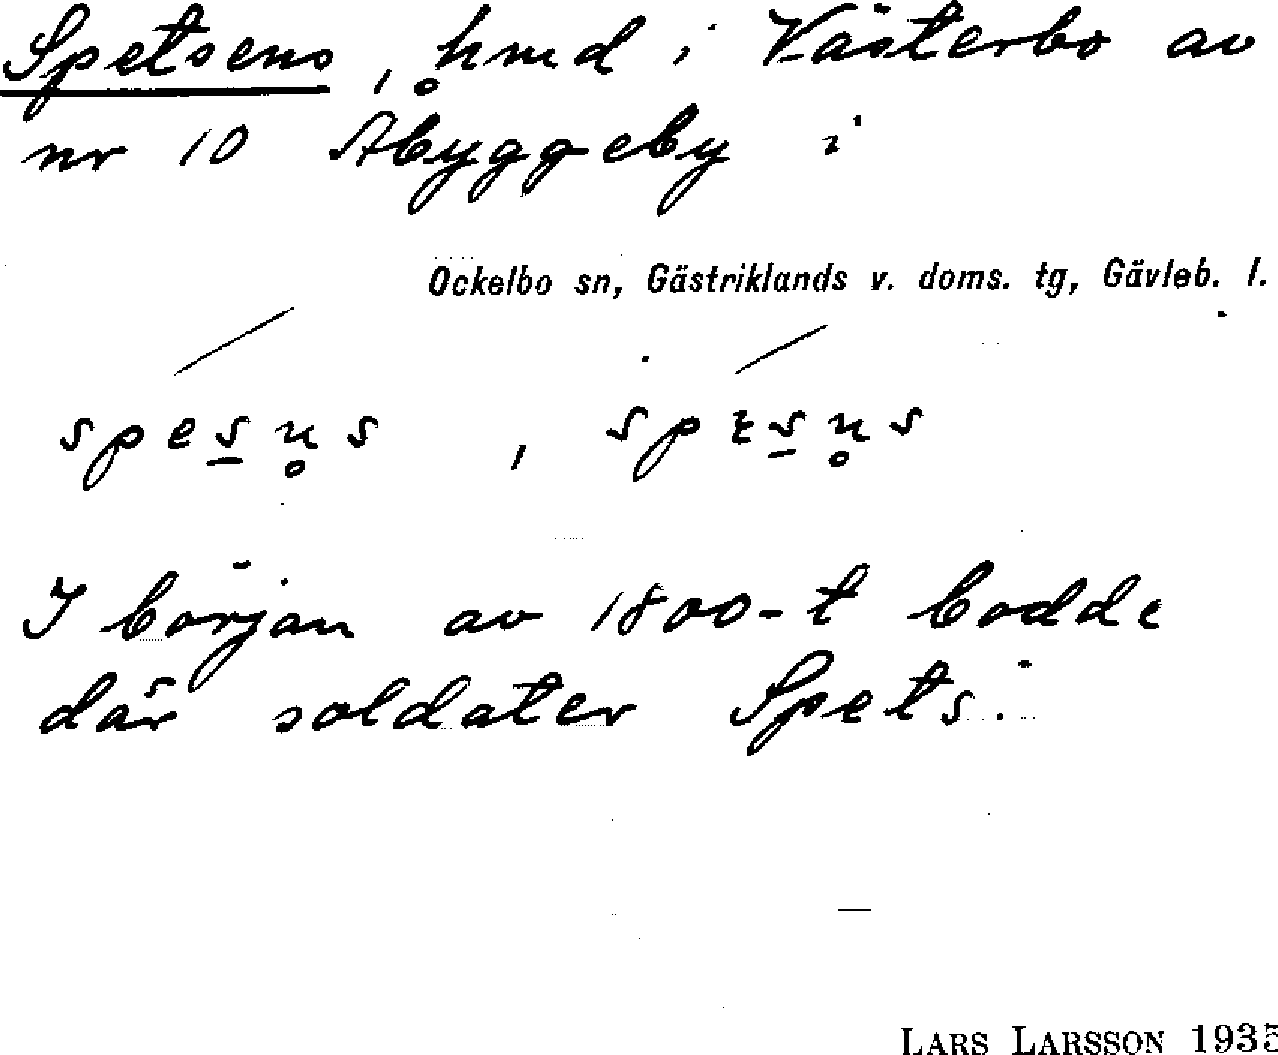 Spetsens, hmd i Västerbo av
nr 10 Åbyggeby i
Ockelbo sn, Gästriklands v. doms. tg, Gävleb. l.
spes̲n̥s, spɛs̲n̥s
I början av 1800-t bodde
där soldaten Spets.
LARS LARSSON 1935